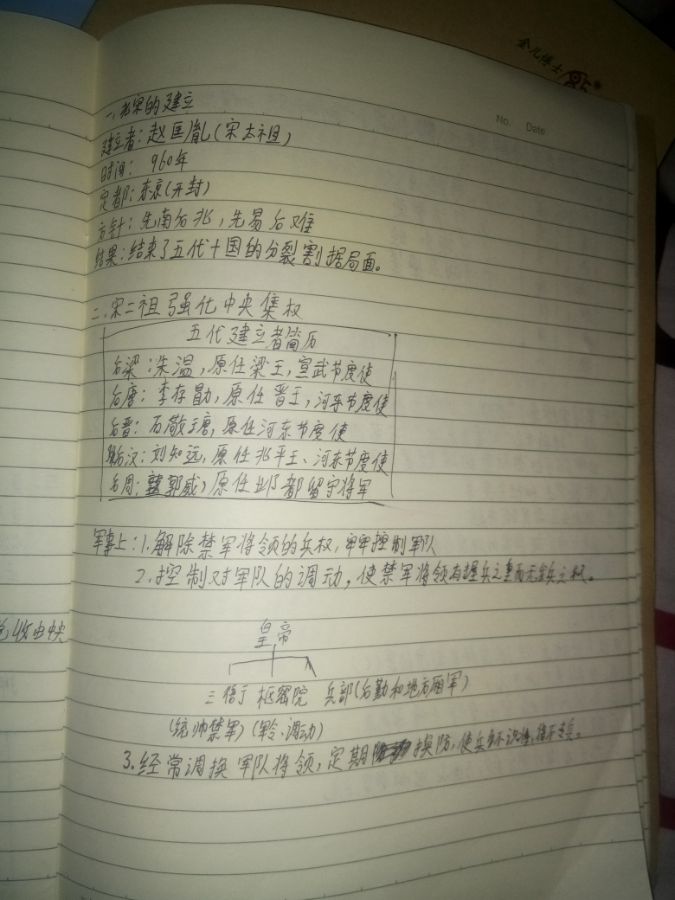 金儿博士
No. Date
一、北宋的建立
建立者：赵匡胤(宋太祖)
时间：960年
定都：东京(开封)
方针：先南后北，先易后难
结果：结束了五代十国的分裂割据局面。
二、宋二祖强化中央集权
五代建立者简历
后梁：朱温，原任梁王，宣武节度使
后唐：李存勖，原任晋王，河东节度使
后晋：石敬瑭，原任河东节度使
后汉：刘知远，原任北平王、河东节度使
后周：郭威，原任邺都留守将军
军事上：1.解除禁军将领的兵权，牢牢控制军队
2.控制对军队的调动，使禁军将领有握兵之重而无发兵之权。
收归中央
皇帝
三衙 枢密院 兵部(后勤和地方厢军)
(统帅禁军)(军令、调动)
3.经常调换军队将领，定期换防，使兵不识将，将不专兵。